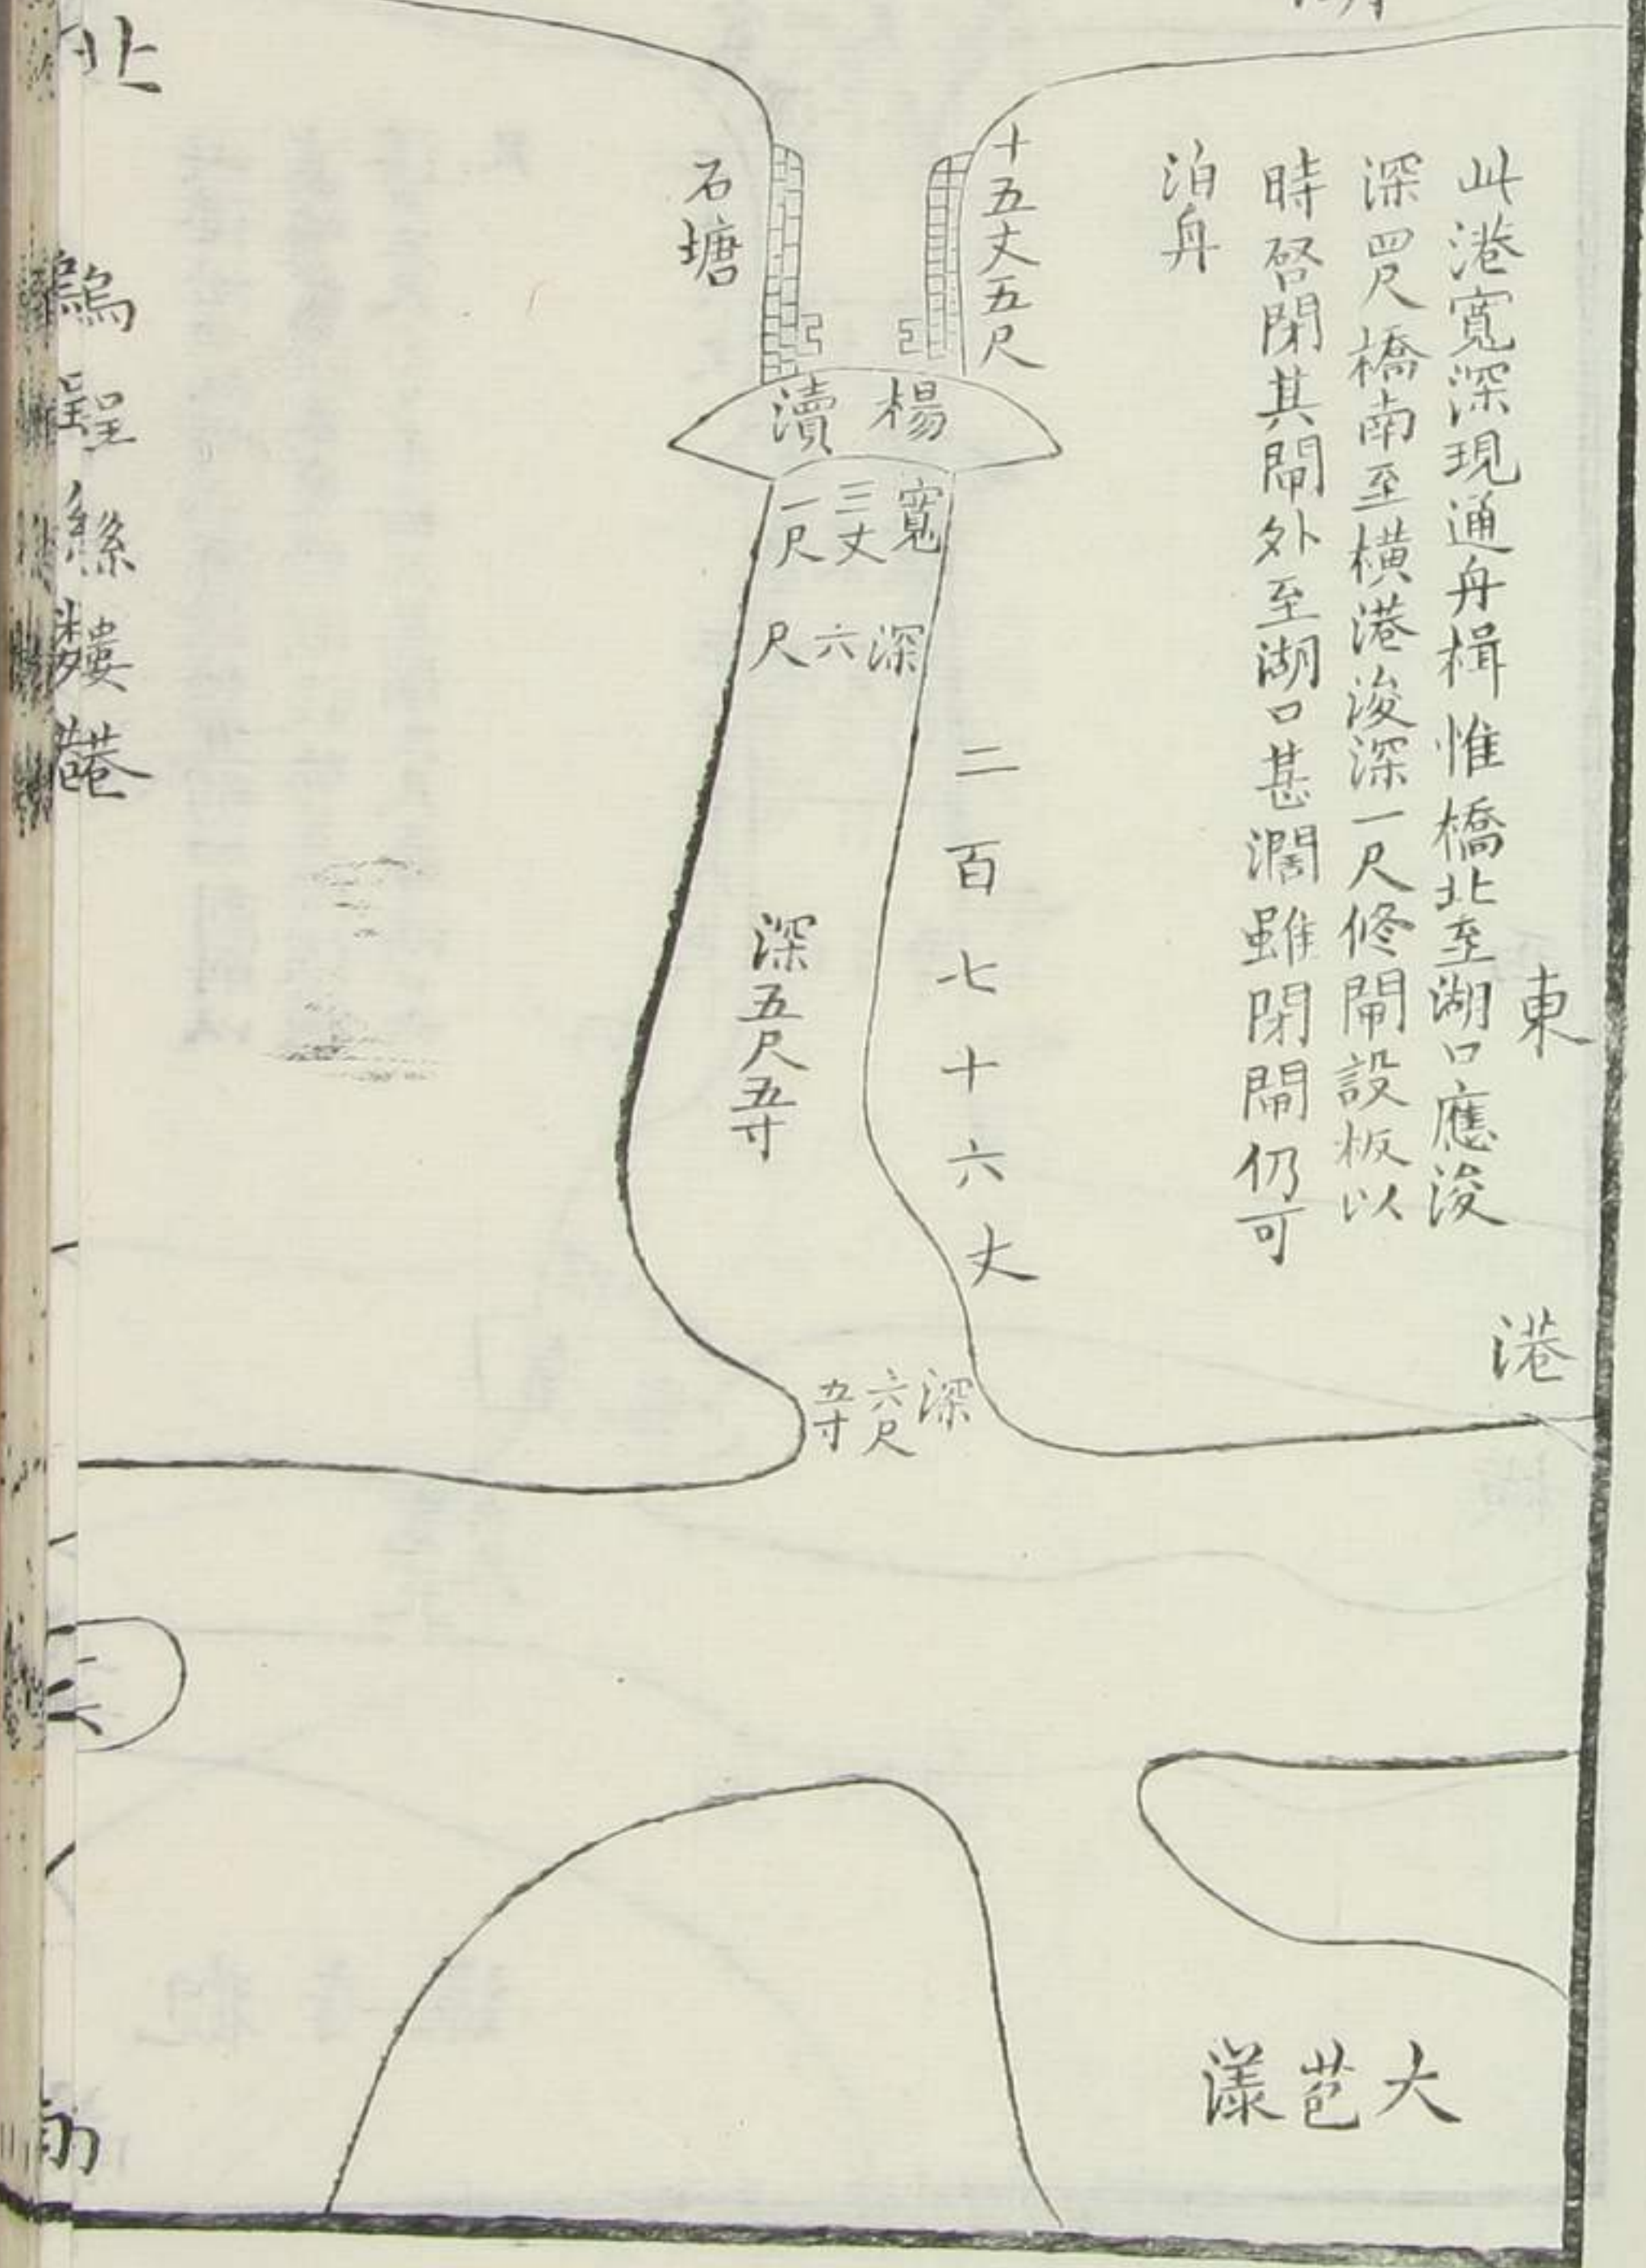 此港寬深現通舟楫惟橋北至湖口應浚
深四尺橋南至橫港浚深一尺修閘設板以
時啓閉其閘外至湖口甚濶雖閉閘仍可
泊舟
東
港
十五丈五尺
石塘
楊瀆
寬三丈一尺
深六尺
二百七十六丈
深五尺五寸
深六尺五寸
大茝漾
北
烏程縣漊港
南